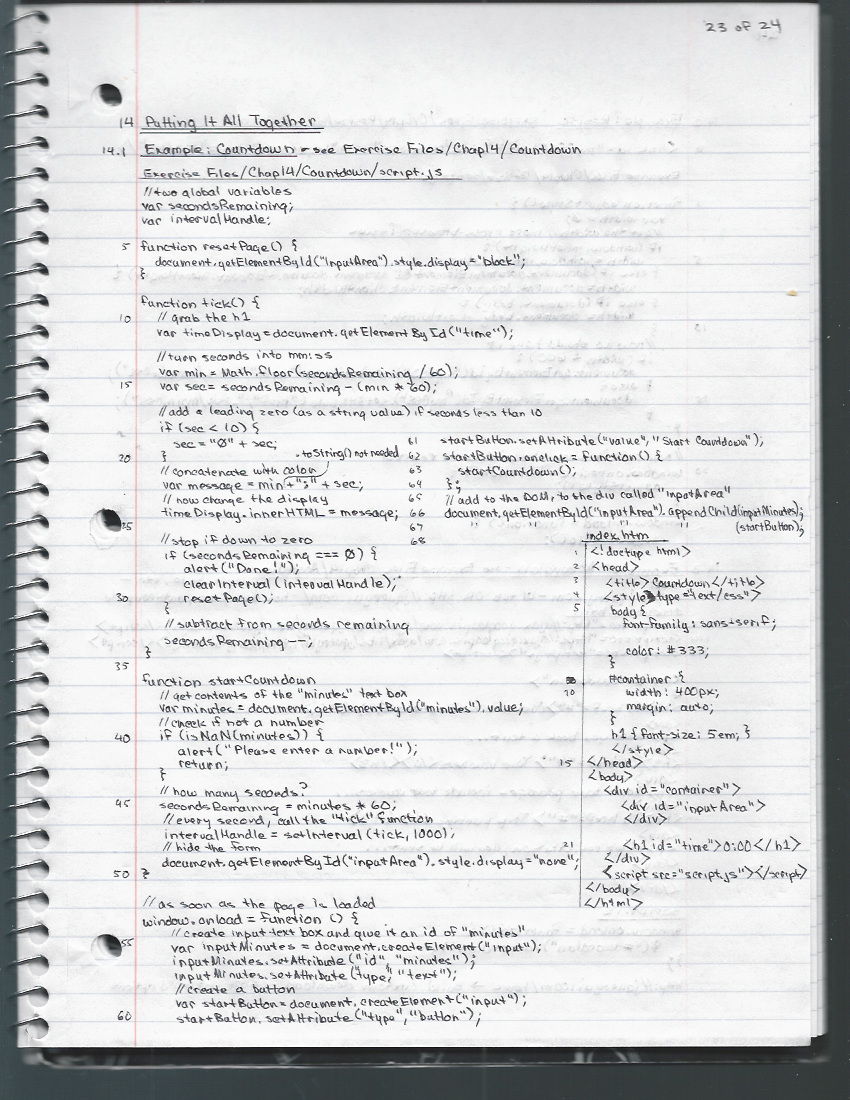 23 of 24
14 Putting It All Together
14.1 Example: Countdown - see Exercise Files/Chap14/Countdown
Exercise Files/Chap14/Countdown/script.js
//two global variables
var secondsRemaining;
var intervalHandle;
5 function resetPage() {
document.getElementById("inputArea").style.display="block";
}
function tick() {
10 // grab the h1
var timeDisplay=document.getElementById("time");
//turn seconds into mm:ss
var min = Math.floor(secondsRemaining / 60);
15 var sec= secondsRemaining - (min * 60);
//add a leading zero (as a string value) if seconds less than 10
if (sec < 10) {
sec = "0" + sec;
20 } .toString() not needed
// concatenate with colon
var message = min+":" + sec;
// now change the display
timeDisplay.innerHTML = message;
25
//stop if down to zero
if (secondsRemaining === 0) {
alert("Done!");
clearInterval(intervalHandle);
30 resetPage();
}
// subtract from seconds remaining
secondsRemaining --;
}
35
function startCountdown
// get contents of the "minutes" text box
var minutes = document.getElementById("minutes").value;
//check if not a number
40 if (isNaN(minutes)) {
alert("Please enter a number!");
return;
}
// how many seconds?
45 secondsRemaining = minutes * 60;
//every second, call the "tick" function
intervalHandle = setInterval (tick, 1000);
// hide the form
document.getElementById("inputArea").style.display="none";
50 }
//as soon as the page is loaded
window.onload = function () {
//create input text box and give it an id of "minutes"
55 var inputMinutes = document.createElement("input");
inputMinutes.setAttribute("id", "minutes");
inputMinutes.setAttribute("type", "text");
//create a button
var startButton=document.createElement("input");
60 startButton.setAttribute("type","button");
61 startButton.setAttribute("value", "Start Countdown");
62 startButton.onclick = function() {
63 startCountdown();
64 };
65 //add to the DOM, to the div called "inputArea"
66 document.getElementById("inputArea").appendChild(inputMinutes);
67 " " " " (startButton);
68
index.htm
1 <!doctype html>
2 <head>
3 <title>Countdown</title>
4 <style type="text/css">
5 body {
font-family: sans-serif;
color: #333;
}
#container {
10 width: 400px;
margin: auto;
}
h1 {font-size: 5em; }
</style>
15 </head>
<body>
<div id="container">
<div id="inputArea">
</div>
21 <h1 id="time">0:00</h1>
</div>
<script src="script.js"></script>
</body>
</html>